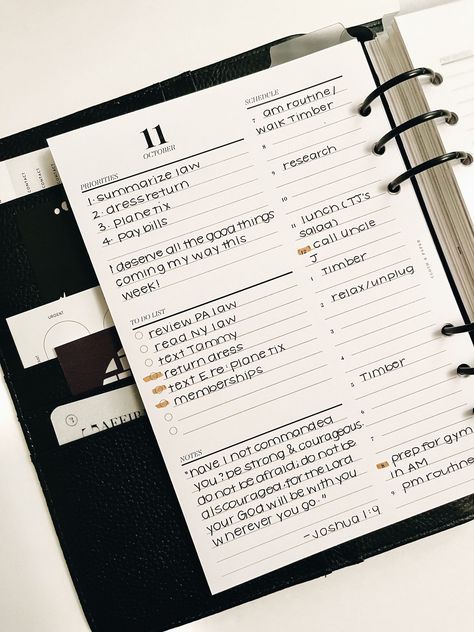 11
OCTOBER
PRIORITIES
1. summarize law
2. dress return
3. plane tix
4. pay bills
I deserve all the good things
coming my way this
week!
TO DO LIST
review PA law
read NY law
text Tammy
return dress
text E re: plane tix
memberships
NOTES
"have I not commanded
you? be strong & courageous.
do not be afraid; do not be
discouraged, for the Lord
your God will be with you
wherever you go."
-Joshua 1:9
SCHEDULE
7 am routine/
walk Timber
8
9 research
10
11 lunch (TJ's
salad)
12 call uncle
J
1 Timber
2 relax/unplug
3
4
5 Timber
6
7
8 prep for gym
in AM
9 pm routine
CLOTH & PAPER
CONTACT
CONTACT
URGENT